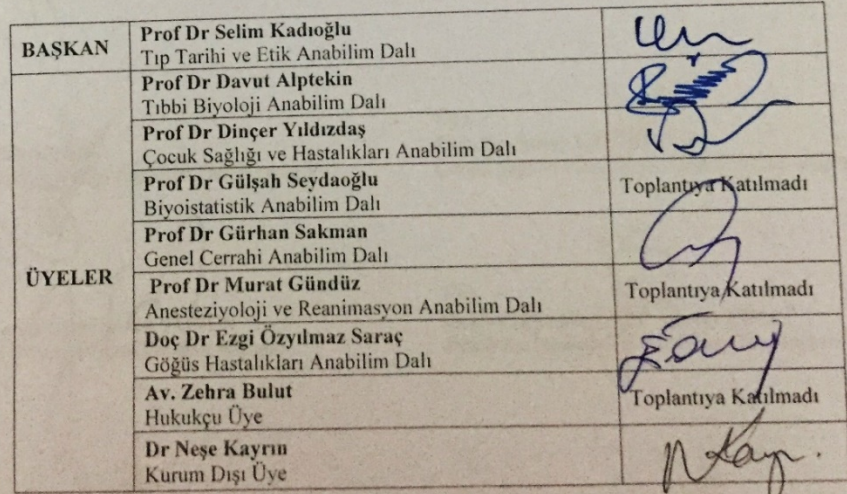 BAŞKAN
Prof Dr Selim Kadıoğlu
Tıp Tarihi ve Etik Anabilim Dalı
ÜYELER
Prof Dr Davut Alptekin
Tıbbi Biyoloji Anabilim Dalı
Prof Dr Dinçer Yıldızdaş
Çocuk Sağlığı ve Hastalıkları Anabilim Dalı
Prof Dr Gülşah Seydaoğlu
Biyoistatistik Anabilim Dalı
Toplantıya Katılmadı
Prof Dr Gürhan Sakman
Genel Cerrahi Anabilim Dalı
Prof Dr Murat Gündüz
Anesteziyoloji ve Reanimasyon Anabilim Dalı
Toplantıya Katılmadı
Doç Dr Ezgi Özyılmaz Saraç
Göğüs Hastalıkları Anabilim Dalı
Av. Zehra Bulut
Hukukçu Üye
Toplantıya Katılmadı
Dr Neşe Kayrın
Kurum Dışı Üye